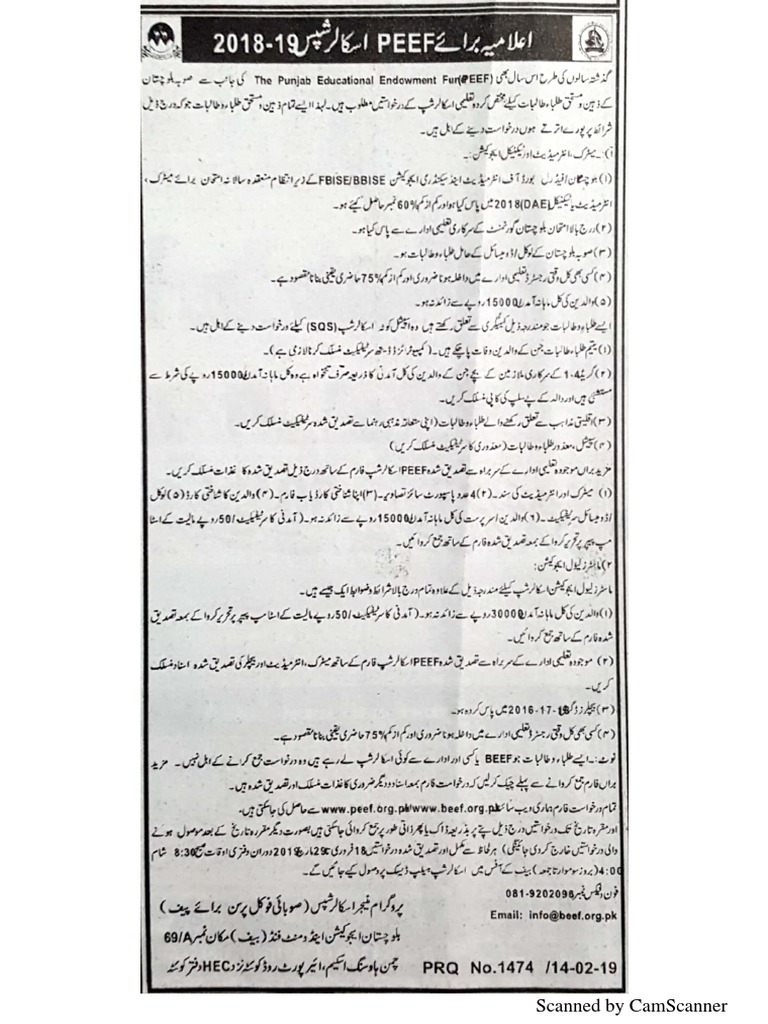 اعلامیہ برائے PEEF اسکالرشپس 2018-19
گذشتہ سالوں کی طرح اس سال بھی The Punjab Educational Endowment Fun(PEEF) کی جانب سے صوبہ بلوچستان
کے ذہین و مستحق طلباء و طالبات کیلئے مختص کردہ تعلیمی اسکالرشپ کے درخواستیں مطلوب ہیں۔ لہذا ایسے تمام ذہین و مستحق طلباء و طالبات جو کہ درج ذیل
شرائط پر پورے اترتے ہوں درخواست دینے کے اہل ہیں۔
(۱):۔ میٹرک، انٹرمیڈیٹ اور ٹیکنیکل ایجوکیشن:۔
(۱) بلوچستان/فیڈرل بورڈ آف انٹرمیڈیٹ اینڈ سیکنڈری ایجوکیشن FBISE/BBISE کے زیر انتظام منعقدہ سالانہ امتحان برائے میٹرک،
انٹرمیڈیٹ یا ٹیکنیکل (DAE) 2018 میں پاس کیا ہو اور کم از کم 60% نمبر حاصل کیئے ہو۔
(۲) درج بالا امتحان بلوچستان گورنمنٹ کے سرکاری تعلیمی ادارے سے پاس کیا ہو۔
(۳) صوبہ بلوچستان کے لوکل/ڈومیسائل کے حامل طلباء و طالبات ہو۔
(۴) کسی بھی کل وقتی رجسٹرڈ تعلیمی ادارے میں داخلہ ہونا ضروری اور کم از کم 75% حاضری یقینی بنانا مقصود ہے۔
(۵) والدین کی کل ماہانہ آمدن 15000 روپے سے زائد نہ ہو۔
ایسے طلباء و طالبات جو مندرجہ ذیل کیٹیگری سے تعلق رکھتے ہیں وہ اسپیشل کوٹہ اسکالرشپ (SQS) کیلئے درخواست دینے کے اہل ہیں۔
(۱) یتیم طلباء و طالبات جن کے والدین وفات پا چکے ہیں۔ (کمپیوٹرائزڈ ڈیتھ سرٹیفکیٹ منسلک کرنا لازمی ہے)۔
(۲) گریڈ 1-4 کے سرکاری ملازمین کے بچے جن کے والدین کی کل آمدنی کا ذریعہ صرف تنخواہ ہے وہ کل ماہانہ آمدن 15000 روپے کی شرط سے
مستثنیٰ ہیں اور والد کے پے سلپ کی کاپی منسلک کریں۔
(۳) اقلیتی مذاہب سے تعلق رکھنے والے طلباء و طالبات (اپنی متعلقہ مذہبی رہنما سے تصدیق شدہ سرٹیفکیٹ منسلک کریں۔
(۴) سپیشل، معذور طلباء و طالبات (معذوری کا سرٹیفکیٹ منسلک کریں)
مزید براں موجودہ تعلیمی ادارے کے سربراہ سے تصدیق شدہ PEEF اسکالرشپ فارم کے ساتھ درج ذیل تصدیق شدہ کاغذات منسلک کریں۔
(۱) میٹرک اور انٹرمیڈیٹ کی سند۔ (۲) 4 عدد پاسپورٹ سائز تصاویر۔ (۳) اپنا شناختی کارڈ یا ب فارم۔ (۴) والدین کا شناختی کارڈ (۵) لوکل
/ڈومیسائل سرٹیفکیٹ۔ (۶) والدین/سرپرست کی کل ماہانہ آمدن 15000 روپے سے زائد نہ ہو۔ (آمدنی کا سرٹیفکیٹ 50/ روپے مالیت کے اسٹا
مپ پیپر پر تحریر کروا کے بمعہ تصدیق شدہ فارم کے ساتھ جمع کروائیں۔
۲) ماسٹرز لیول ایجوکیشن:
ماسٹرز لیول ایجوکیشن اسکالرشپ کیلئے مندرجہ ذیل کے علاوہ تمام درج بالا شرائط و ضوابط ایک جیسے ہیں۔
(۱) والدین کی کل ماہانہ آمدن 30000 روپے سے زائد نہ ہو۔ (آمدنی کا سرٹیفکیٹ 50/ روپے مالیت کے اسٹامپ پیپر پر تحریر کروا کے بمعہ تصدیق
شدہ فارم کے ساتھ جمع کروائیں۔
(۲) موجودہ تعلیمی ادارے کے سربراہ سے تصدیق شدہ PEEF اسکالرشپ فارم کے ساتھ میٹرک، انٹرمیڈیٹ اور بیچلر کی تصدیق شدہ اسناد منسلک
کریں۔
(۳) بیچلرز ڈگری 2016-17 میں پاس کردہ ہو۔
(۴) کسی بھی کل وقتی رجسٹرڈ تعلیمی ادارے میں داخلہ ہونا ضروری اور کم از کم 75% حاضری یقینی بنانا مقصود ہے۔
نوٹ:۔ ایسے طلباء و طالبات جو BEEF یا کسی اور ادارے سے کوئی اسکالرشپ لے رہے ہیں وہ درخواست جمع کرانے کے اہل نہیں۔ مزید
براں فارم جمع کروانے سے پہلے چیک کرلیں کہ درخواست فارم بمعہ اسناد و دیگر ضروری کاغذات منسلک اور تصدیق شدہ ہیں۔
تمام درخواست فارم ہماری ویب سائٹ www.peef.org.pk/www.beef.org.pk سے حاصل کی جاسکتی ہیں۔
اور مقررہ تاریخ تک درخواستیں درج ذیل پتے پر بذریعہ ڈاک یا پھر ذاتی طور پر جمع کروائی جاسکتی ہیں بصورت دیگر مقررہ تاریخ کے بعد موصول ہونے
والی درخواستیں خارج کردی جائیگی) ہر لحاظ سے مکمل اور تصدیق شدہ درخواستیں 18 فروری تا 29 مارچ 2019 دوران دفتری اوقات صبح 8:30 شام
4:00 (بروز سوموار تا جمعہ) بیف کے آفس میں اسکالرشپ ہیلپ ڈیسک پر وصول کیے جائیں گے۔
فون و فیکس نمبر 081-9202098
Email: info@beef.org.pk
پروگرام منیجر اسکالرشپس (صوبائی فوکل پرسن برائے پیف)
بلوچستان ایجوکیشن اینڈومنٹ فنڈ (بیف) مکان نمبر 69/A
چمن ہاوسنگ اسکیم، ائیرپورٹ روڈ کوئٹہ نزد HEC دفتر کوئٹہ
PRQ No.1474 /14-02-19
Scanned by CamScanner